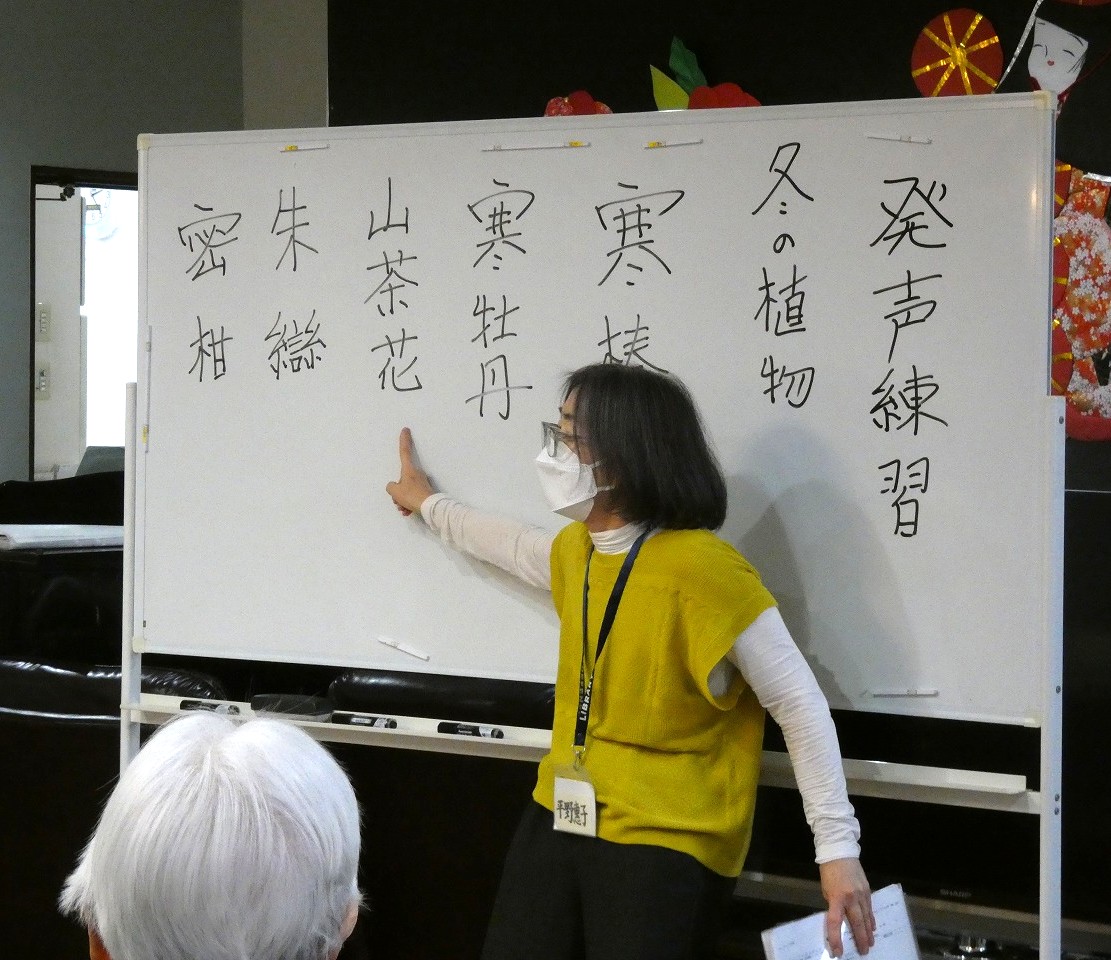 発声練習
冬の植物
寒椿
寒牡丹
山茶花
朱欒
密柑
LIBRARY
平野恵子
SHARP